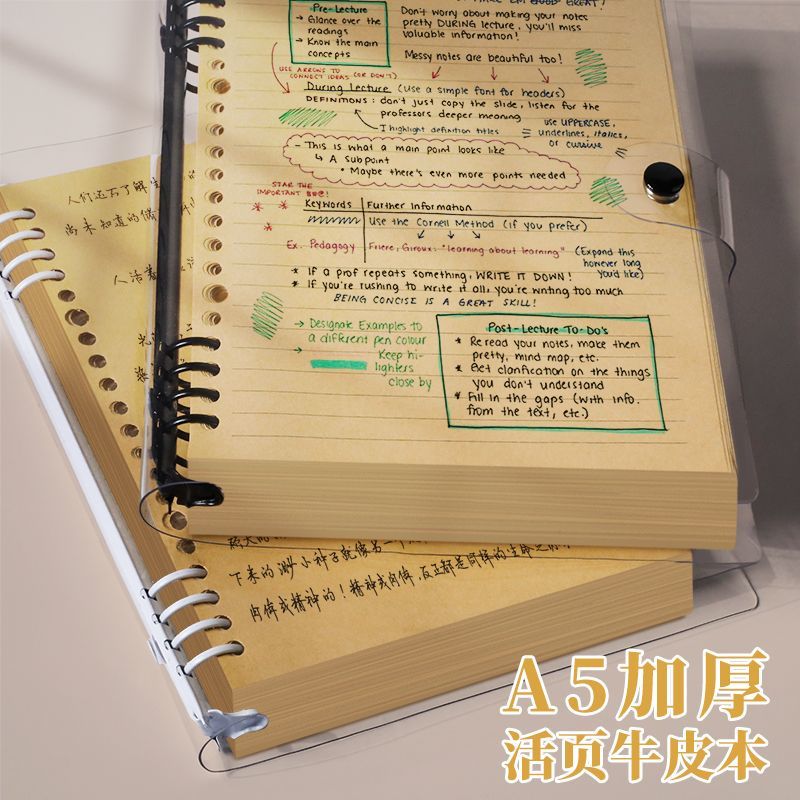 Pre-Lecture
→ Glance over the readings
→ Know the main concepts
Don't worry about making your notes
pretty DURING lecture, you'll miss
valuable information!
Messy notes are beautiful too!
USE ARROWS TO
CONNECT IDEAS (OR DON'T)
During lecture (use a simple font for headers)
DEFINITIONS: don't just copy the slide, listen for the
professors deeper meaning
I highlight definition titles
use UPPERCASE,
underlines, italics,
or cursive
- This is what a main point looks like
↳ A subpoint
• Maybe there's even more points needed
STAR THE
IMPORTANT
Keywords
Further Information
Use the Cornell Method (if you prefer)
Ex. Pedagogy
Friere, Giroux: "learning about learning"
(Expand this
however long
you'd like)
* If a prof repeats something, WRITE IT DOWN!
* If you're rushing to write it all, you're writing too much
BEING CONCISE IS A GREAT SKILL!
→ Designate Examples to
a different pen colour
→ Keep hi-
lighters
close by
Post-Lecture To-Do's
* Reread your notes, make them
pretty, mind map, etc.
* Get clarification on the things
you don't understand
* Fill in the gaps (with info.
from the text, etc.)
人们还不了解
尚未知道的
人活着
下来的渺小种子就像另一个
肉体或精神的！精神或肉体，反正都是同样的生命之
A5加厚
活页牛皮本